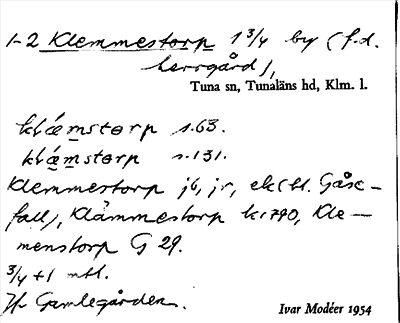 1-2 Klemmestorp 1 3/4 by (f.d.
herrgård),
Tuna sn, Tunaläns hd, Klm. l.
klǽmstorp s.63.
klǽmstorp s.131.
Klemmestorp jb, jr, ek (bl. Gåse-
fall), Klämmestorp k 1790, Kle-
menstorp G 29.
3/4 + 1 mtl.
Hr Gamlegården.
Ivar Modéer 1954